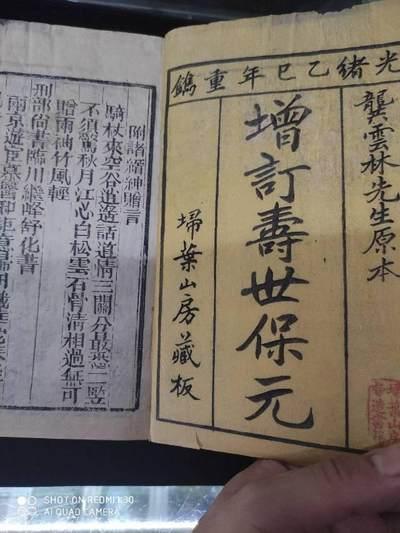 光緒乙巳年重鐫
龔雲林先生原本
增訂壽世保元
埽葉山房藏板
附諸縉紳贈言
騎杖來空谷逍遙話道情三關分最悉一豎
不須驚秋月江心白松雲石骨清相過無可
贈兩袖竹風輕
刑部尚書臨川繼峰舒化書